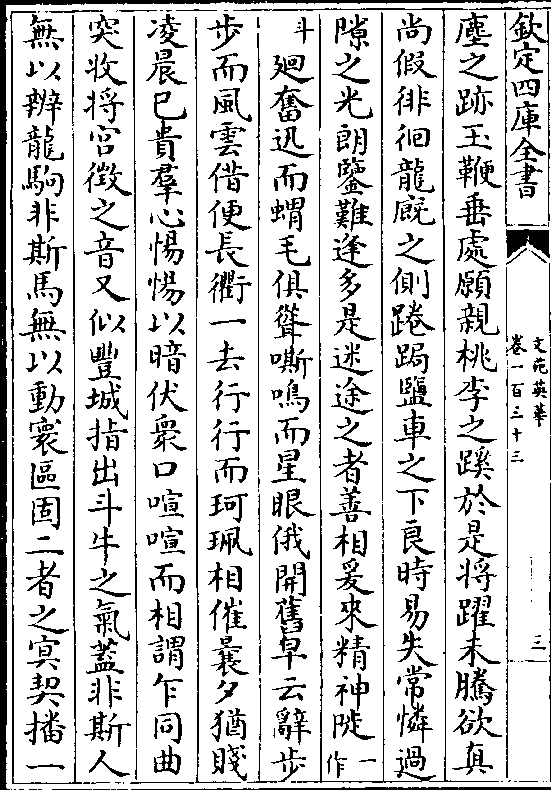 欽定四庫全書
文苑英華
卷一百三十三
三
塵之跡玉鞭垂處願親桃李之蹊於是將躍未騰欲真
尚假徘徊龍廐之側踡跼鹽車之下良時易失常憐過
隙之光朗鑒難逢多是迷途之者善相爰來精神陡一作
斗廻奮迅而蝟毛俱聳嘶鳴而星眼俄開舊皁云辭步
步而風雲借便長衢一去行行而珂珮相催曩夕猶賤
凌晨已貴羣心惕惕以暗伏衆口喧喧而相謂乍同曲
突收將宫徵之音又似豐城指出斗牛之氣蓋非斯人
無以辨龍駒非斯馬無以動寰區固二者之冥契播一